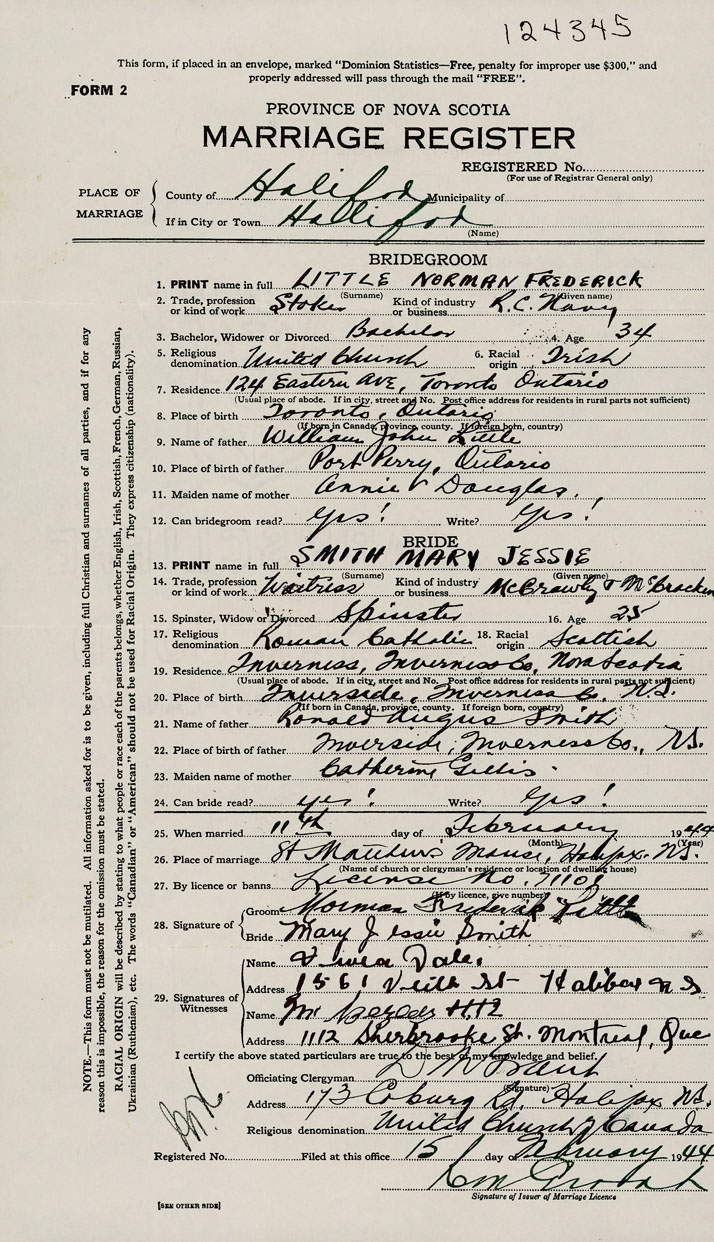 124345
This form, if placed in an envelope, marked “Dominion Statistics—Free, penalty for improper use $300,” and
properly addressed will pass through the mail “FREE”.
FORM 2
PROVINCE OF NOVA SCOTIA
MARRIAGE REGISTER
REGISTERED No.
(For use of Registrar General only)
PLACE OF MARRIAGE
County of Halifax Municipality of
If in City or Town Halifax
(Name)
BRIDEGROOM
1. PRINT name in full LITTLE NORMAN FREDERICK
(Surname) (Given name)
2. Trade, profession or kind of work Stoker Kind of industry or business R.C. Navy
3. Bachelor, Widower or Divorced Bachelor 4. Age 34
5. Religious denomination United Church 6. Racial origin Irish
7. Residence 124 Eastern Ave, Toronto Ontario
(Usual place of abode. If in city, street and No. Post office address for residents in rural parts not sufficient)
8. Place of birth Toronto, Ontario
(If born in Canada, province, county. If foreign born, country)
9. Name of father William John Little
10. Place of birth of father Port Perry, Ontario
11. Maiden name of mother Annie Douglas.
12. Can bridegroom read? Yes! Write? Yes!
BRIDE
13. PRINT name in full SMITH MARY JESSIE
(Surname) (Given name)
14. Trade, profession or kind of work Waitress Kind of industry or business
15. Spinster, Widow or Divorced Spinster 16. Age 25
17. Religious denomination Roman Catholic 18. Racial origin Scottish
19. Residence Inverness, Inverness Co, Nova Scotia
(Usual place of abode. If in city, street and No. Post office address for residents in rural parts not sufficient)
20. Place of birth Inverside, Inverness Co. N.S.
(If born in Canada, province, county. If foreign born, country)
21. Name of father Ronald Angus Smith
22. Place of birth of father Inverside, Inverness Co., N.S.
23. Maiden name of mother Catherine Gillis
24. Can bride read? yes! Write? Yes!
25. When married 11th day of February 1944
(Month) (Year)
26. Place of marriage St Matthew's Manse, Halifax. N.S.
(Name of church or clergyman's residence or location of dwelling house)
27. By licence or banns License No.
(If by licence, give number)
28. Signature of
Groom Norman Frederick Little
Bride Mary Jessie Smith
29. Signatures of Witnesses
Name Dale.
Address 1561 Veith St Halifax N S
Name
Address 1112 Sherbrooke St. Montreal, Que
I certify the above stated particulars are true to the best of my knowledge and belief.
Officiating Clergyman
(Signature)
Address 173 Coburg Rd, Halifax N.S.
Religious denomination United Church of Canada
Registered No. Filed at this office 15 day of February 1944
Signature of Issuer of Marriage Licence
[SEE OTHER SIDE]
NOTE.—This form must not be mutilated. All information asked for is to be given, including full Christian and surnames of all parties, and if for any
reason this is impossible, the reason for the omission must be stated.
RACIAL ORIGIN will be described by stating to what people or race each of the parents belongs, whether English, Irish, Scottish, French, German, Russian,
Ukrainian (Ruthenian), etc. The words “Canadian” or “American” should not be used for Racial Origin. They express citizenship (nationality).